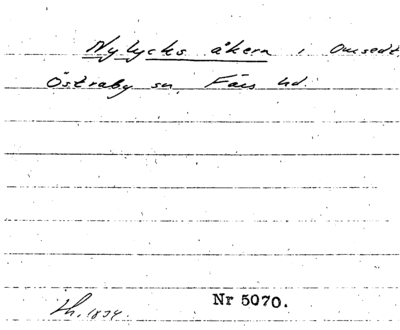 Nylycks åkern, Onsedt.
Östraby sn, Färs hd.
Nr 5070.
Lh. 1834.